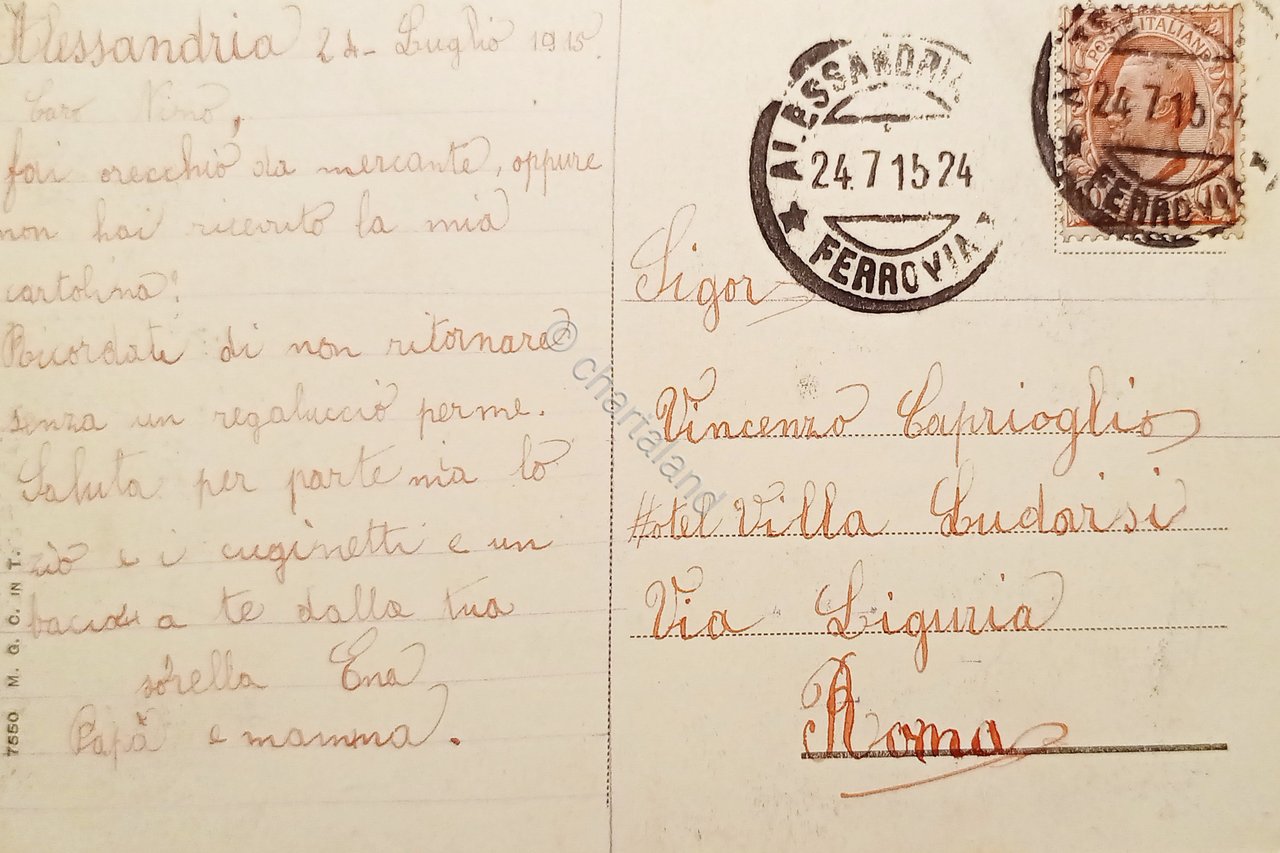 Alessandria 24- Luglio 1915.
Caro Nino,
fai orecchio da mercante, oppure
non hai ricevuto la mia
cartolina?
Ricordati di non ritornare
senza un regaluccio perme.
Saluta per parte mia lo
zio e i cuginetti e un
bacio a te dalla tua
sorella Ena
Papà e mamma.
7550 M. G. C. IN T.
ALESSANDRIA
24.7.15 24
FERROVIA
POSTE ITALIANE
24.7.15 24
FERROVIA
Sigor
Vincenzo Caprioglio
Hotel Villa Ludovisi
Via Liguria
Roma
© chartaland